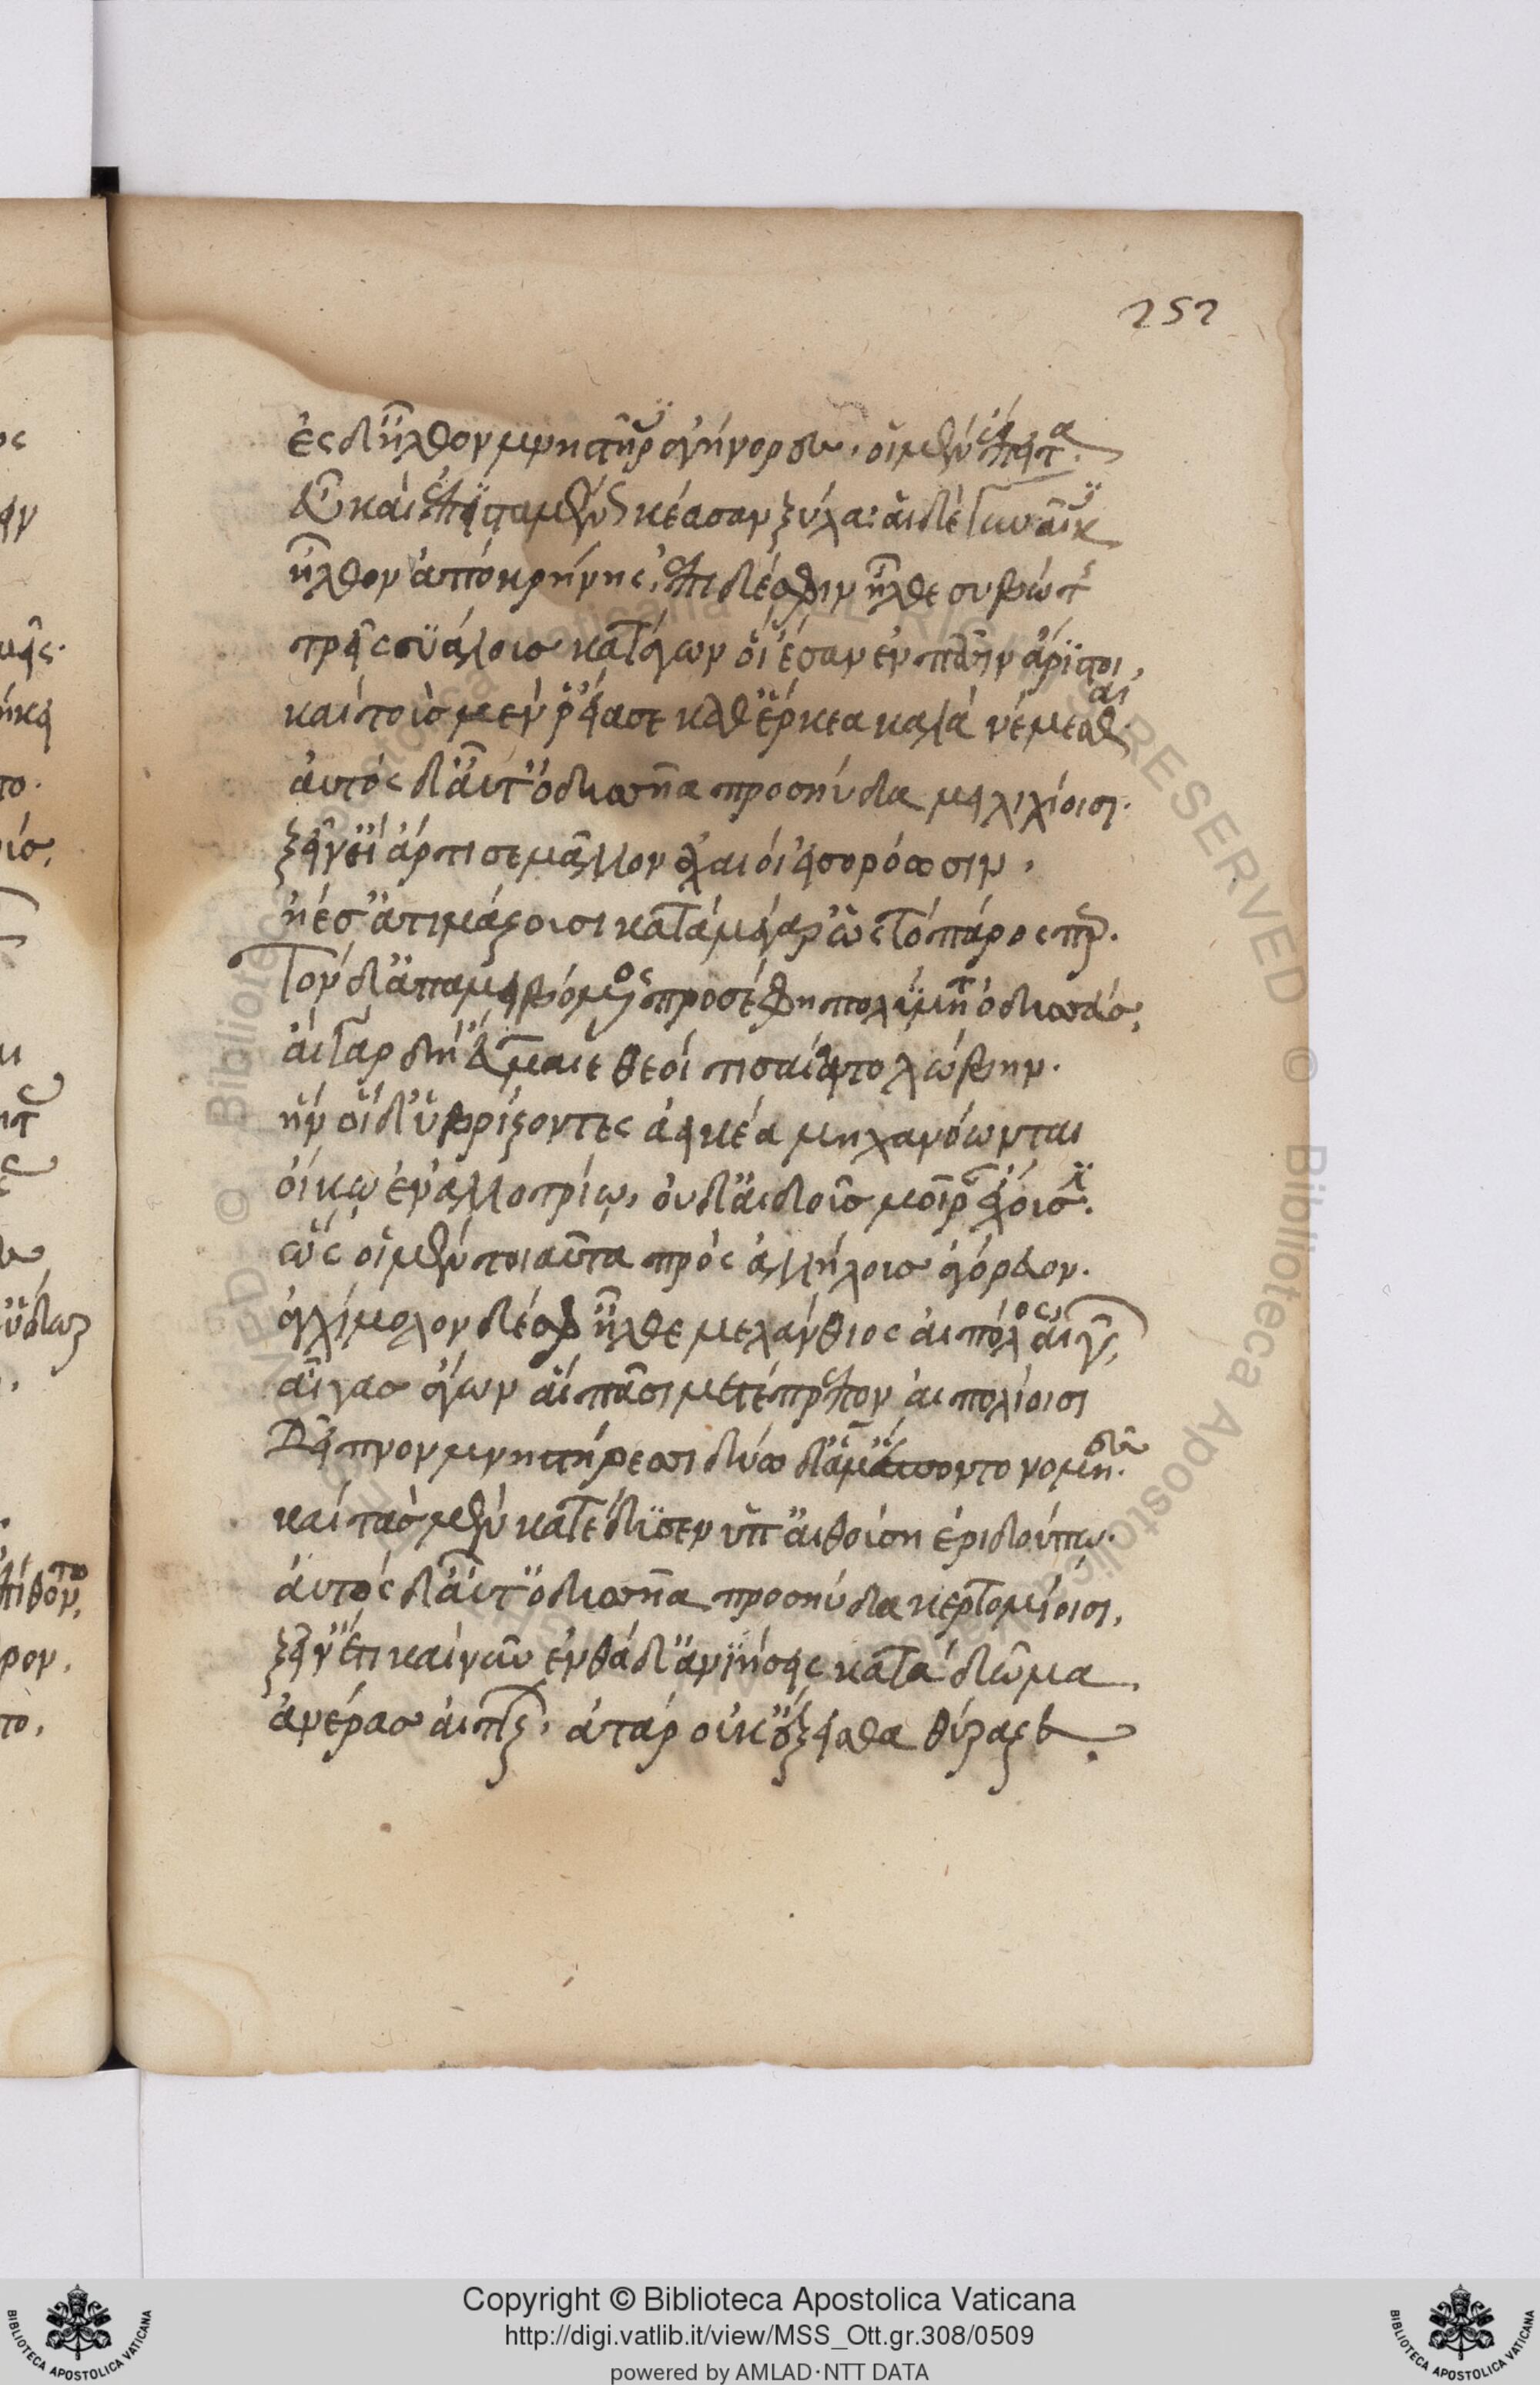 252
ἐς δ' ἦλθον μνηστῆρες ἀγήνορες, οἱ μὲν ἔπειτα.
εὖ καὶ ἐπισταμένως κέασαν ξύλα: αἱ δὲ γυναῖκες
ἦλθον ἀπὸ κρήνης, ἐπὶ δέ σφιν ἦλθε συβώτης
τρεῖς συάλους κατάγων οἱ ἔσαν ἐν πᾶσιν ἄριστοι,
καὶ τοὺς μὲν ῥ' εἴασε καθ' ἕρκεα καλὰ νέμεσθαι.
αὐτὸς δ' αὖτ' ὀδυσσῆα προσηύδα μειλιχίοισι.
ξεῖν' εἰ ἄρ τί σε μᾶλλον ἀχαιοὶ εἰσορόωσιν,
ἠέ σ' ἀτιμάζουσι κατὰ μέγαρ' ὡς τὸ πάρος περ.
Τὸν δ' ἀπαμειβόμενος προσέφη πολύμητις ὀδυσσεύς,
αἲ γὰρ δὴ εὔμαιε θεοὶ τισαίατο λώβην.
ἣν οἵδ' ὑβρίζοντες ἀεικέα μηχανόωνται
οἴκῳ ἐν ἀλλοτρίῳ, οὐδ' αἰδοῦς μοῖραν ἔχουσιν.
ὣς οἱ μὲν τοιαῦτα πρὸς ἀλλήλους ἀγόρευον.
ἀγχίμολον δέ σφ' ἦλθε μελάνθιος αἰπόλος αἰγῶν,
αἶγας ἄγων αἳ πᾶσι μετέπρεπον αἰπολίοισι
Δεῖπνον μνηστήρεσσι δύω δ' ἅμ' ἕποντο νομῆες.
καὶ τὰς μὲν κατέδησεν ὑπ' αἰθούσῃ ἐριδούπῳ.
αὐτὸς δ' αὖτ' ὀδυσσῆα προσηύδα κερτομίοισι,
ξεῖν' ἔτι καὶ νῦν ἐνθάδ' ἀνιήσεις κατὰ δῶμα.
ἀνέρας αἰτίζων, ἀτὰρ οὐκ ἔξεισθα θύραζε.
Copyright © Biblioteca Apostolica Vaticana
http://digi.vatlib.it/view/MSS_Ott.gr.308/0509
powered by AMLAD·NTT DATA